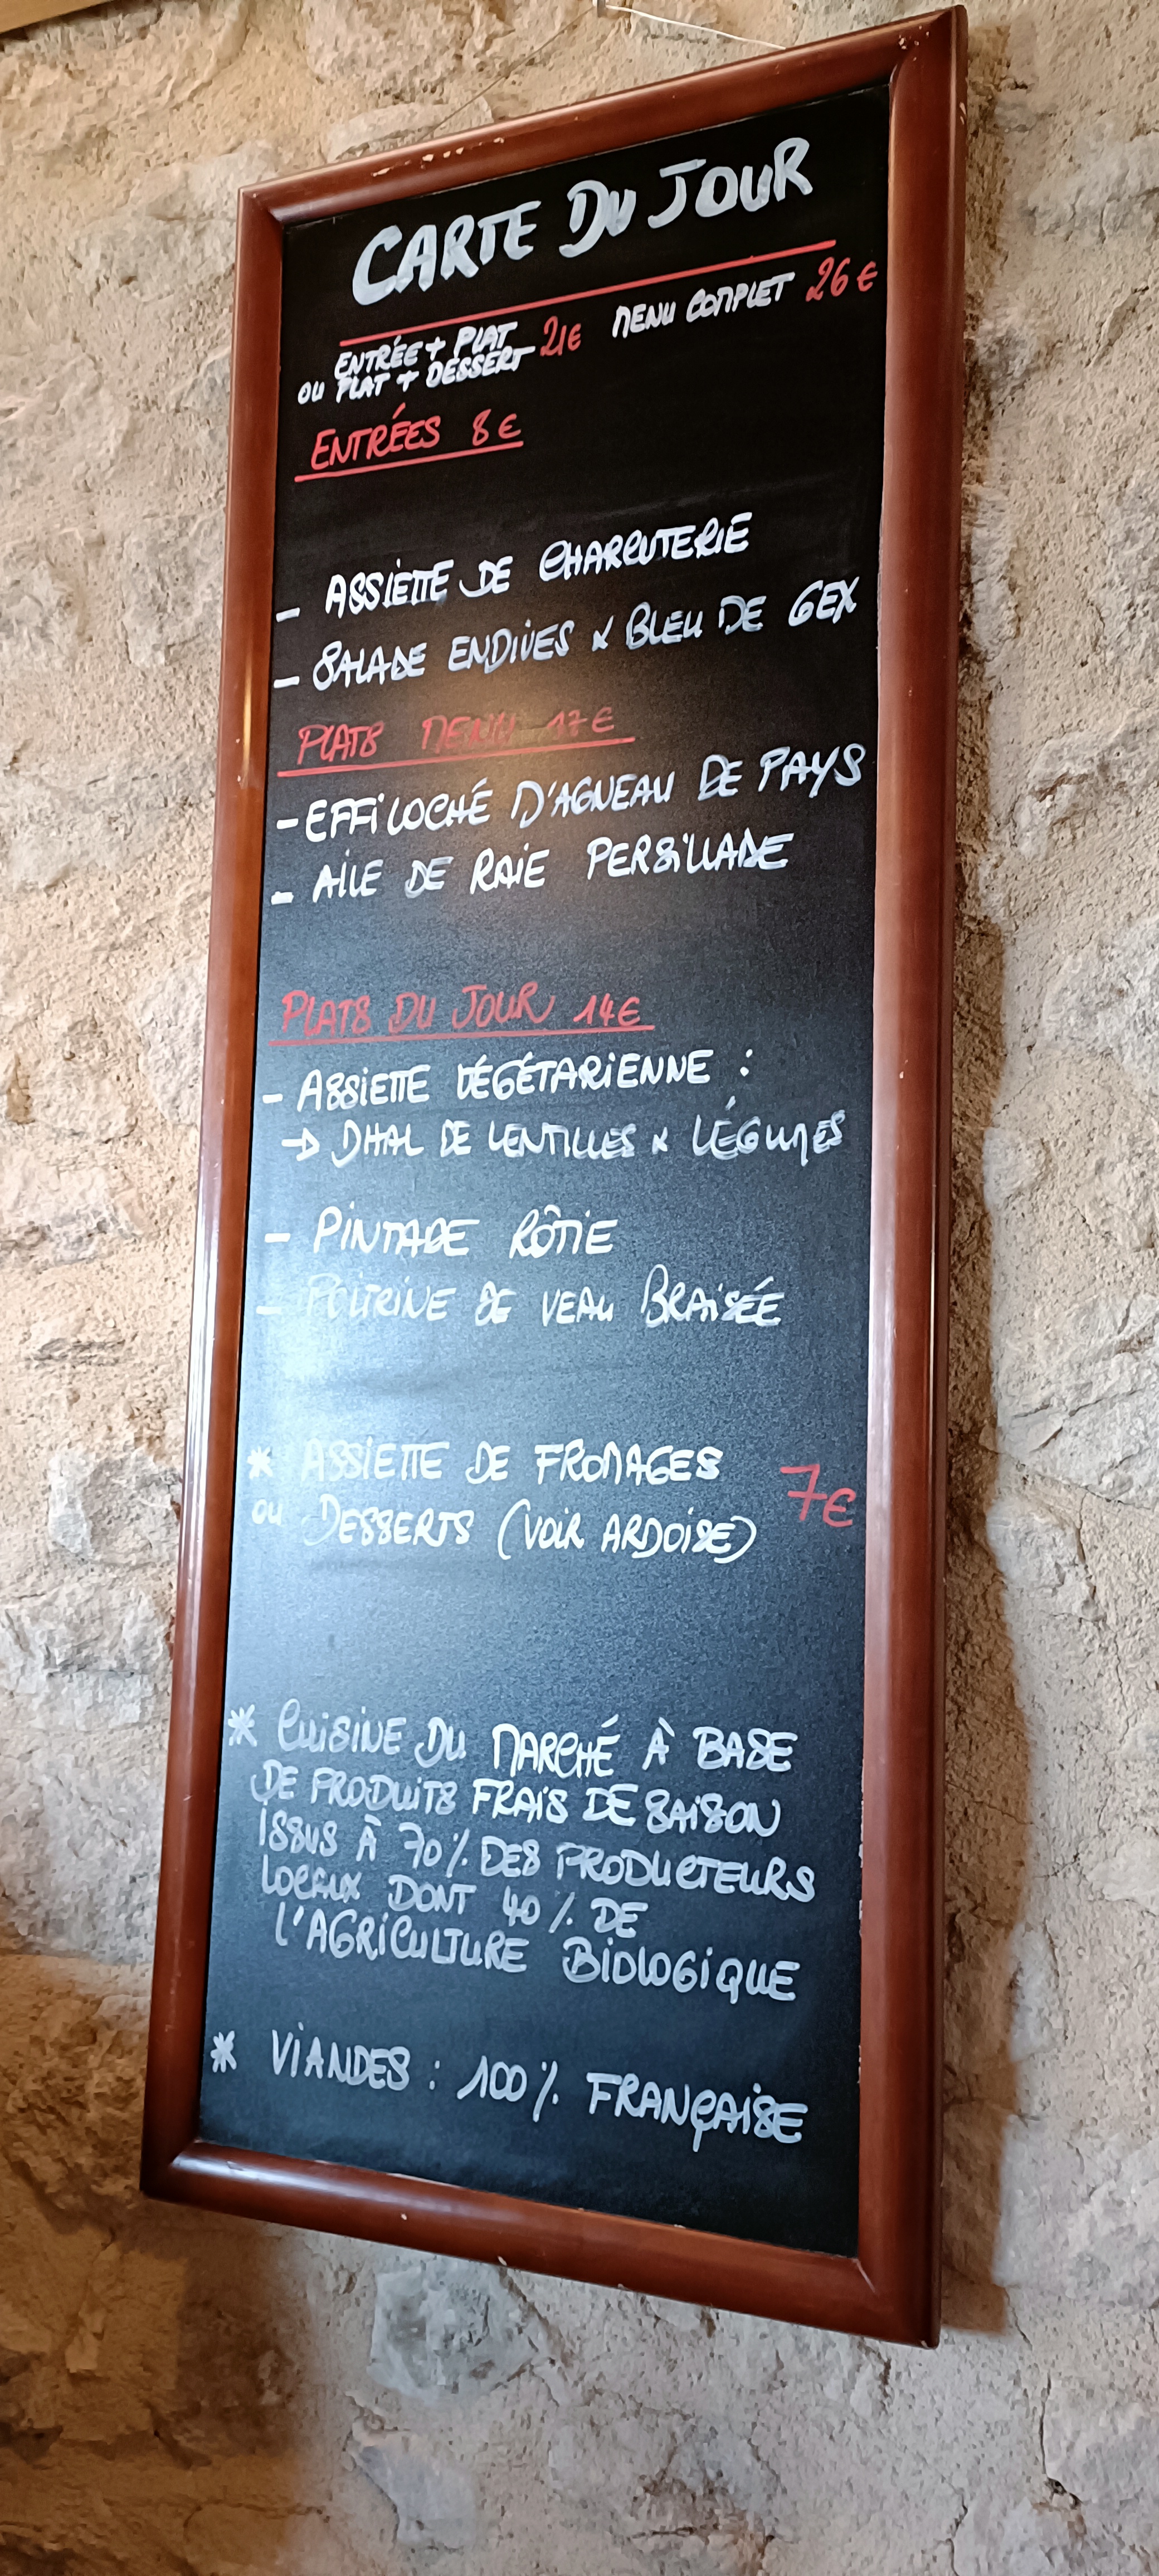 CARTE DU JOUR
ENTRÉE + PLAT
OU PLAT + DESSERT 21€ MENU COMPLET 26€
ENTRÉES 8€
- ASSIETTE DE CHARCUTERIE
- SALADE ENDIVES & BLEU DE GEX
PLATS MENU 17€
- EFFILOCHÉ D'AGNEAU DE PAYS
- AILE DE RAIE PERSILLADE
PLATS DU JOUR 14€
- ASSIETTE VÉGÉTARIENNE :
→ DHAL DE LENTILLES & LÉGUMES
- PINTADE RÔTIE
- POITRINE DE VEAU BRAISÉE
* ASSIETTE DE FROMAGES
OU DESSERTS (VOIR ARDOISE) 7€
* CUISINE DU MARCHÉ À BASE
DE PRODUITS FRAIS DE SAISON
ISSUS À 70% DES PRODUCTEURS
LOCAUX DONT 40% DE
L'AGRICULTURE BIOLOGIQUE
* VIANDES : 100% FRANÇAISE